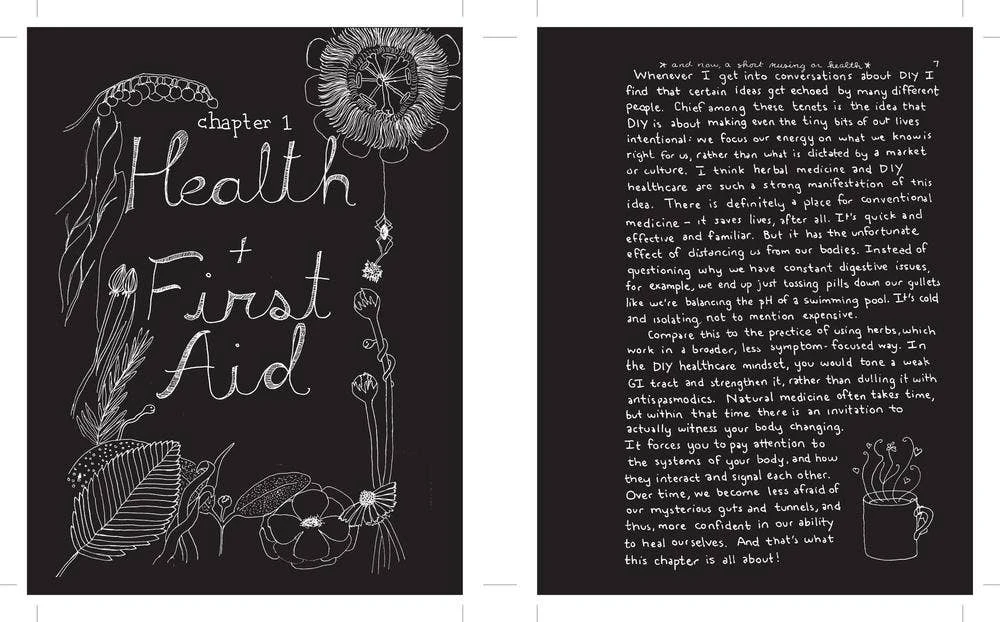 chapter 1
Health
+
First
Aid
* and now, a short musing on health *
7
Whenever I get into conversations about DIY I
find that certain ideas get echoed by many different
people. Chief among these tenets is the idea that
DIY is about making even the tiny bits of our lives
intentional: we focus our energy on what we know is
right for us, rather than what is dictated by a market
or culture. I think herbal medicine and DIY
healthcare are such a strong manifestation of this
idea. There is definitely a place for conventional
medicine - it saves lives, after all. It's quick and
effective and familiar. But it has the unfortunate
effect of distancing us from our bodies. Instead of
questioning why we have constant digestive issues,
for example, we end up just tossing pills down our gullets
like we're balancing the pH of a swimming pool. It's cold
and isolating, not to mention expensive.
Compare this to the practice of using herbs, which
work in a broader, less symptom-focused way. In
the DIY healthcare mindset, you would tone a weak
GI tract and strengthen it, rather than dulling it with
antispasmodics. Natural medicine often takes time,
but within that time there is an invitation to
actually witness your body changing.
It forces you to pay attention to
the systems of your body, and how
they interact and signal each other.
Over time, we become less afraid of
our mysterious guts and tunnels, and
thus, more confident in our ability
to heal ourselves. And that's what
this chapter is all about!